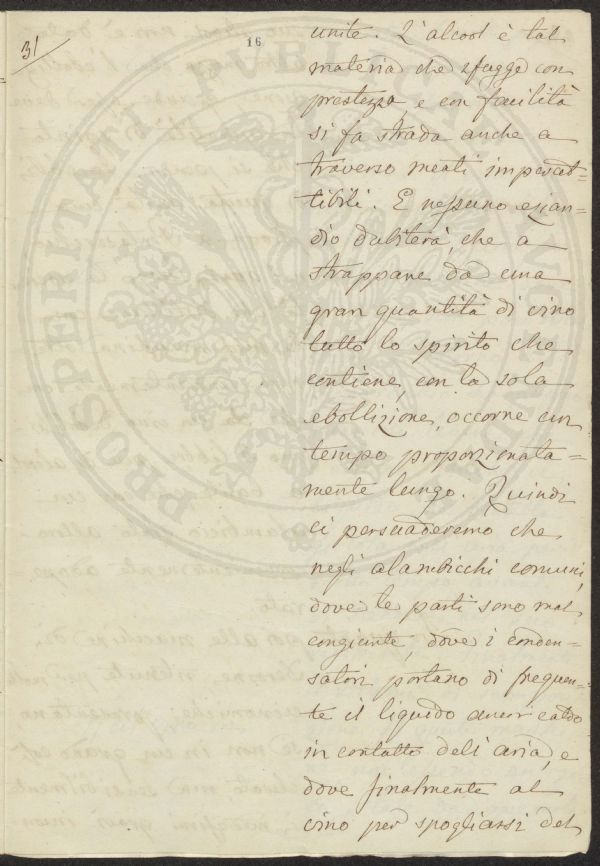 31
16
unite. L'alcool è tal
materia che sfugge con
prestezza e con facilità
si fa strada anche a
traverso meati impercet=
tibili. E nessuno ezian=
dio dubiterà, che a
strappare da una
gran quantità di vino
tutto lo spirito che
contiene, con la sola
ebollizione, occorre un
tempo proporzionata=
mente lungo. Quindi
ci persuaderemo che
negli alambicchi comuni,
dove le parti sono mal
congiunte, dove i conden=
satori portano di frequen=
te il liquido ancor caldo
in contatto dell'aria, e
dove finalmente al
vino per spogliarsi del